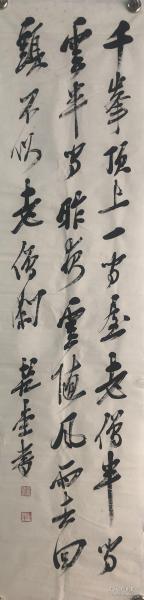 千峯頂上一間屋老僧半間
雲半間昨夜雲隨風雨去回
頭不似老僧閑
書